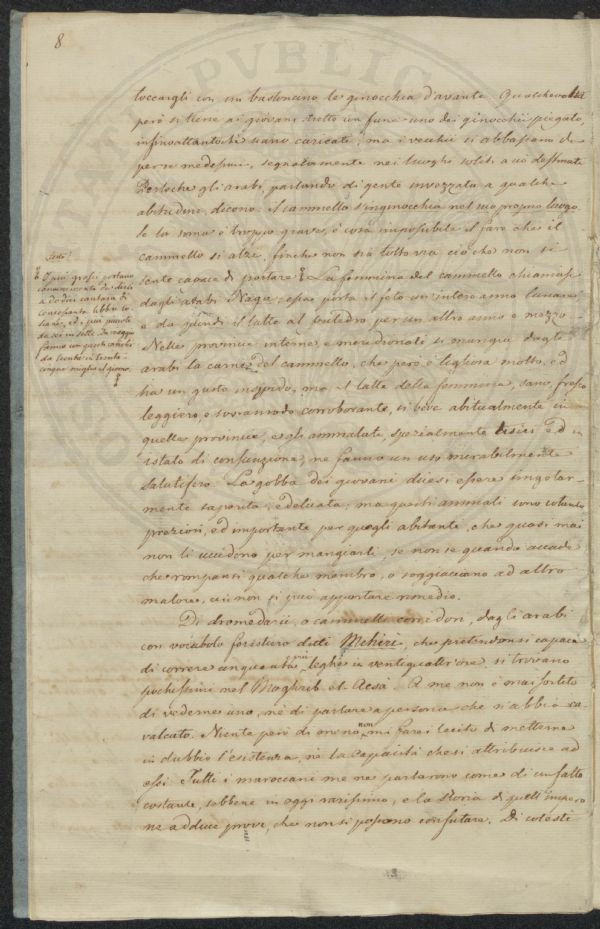 8
toccargli con un bastoncino le ginocchia d'avante. Qualchevolta
però si tiene ai giovani stretto con fune uno dei ginocchii piegato,
infinoattantochè siano caricati; ma i vecchii si abbassano da
per se medesimi, segnatamente nei luoghi soliti a ciò destinati
Perlochè gli arabi, parlando di gente invezzata a qualche
abitudine, dicono: il cammello s'inginocchia nel suo proprio luogo.
Se la soma è troppo grave, è cosa impossibile il fare che il
cammello si alzi, finchè non sia tolto via ciò che non si
sente capace di portare. La femmina del cammello chiamasi
dagli arabi Naga; essa porta il feto un'intero anno lunare
e dà quindi il latte al puledro per un altro anno e mezzo.
Nelle provincie interne e meridionali si mangia dagli
arabi la carne del cammello, che però è tigliosa molto, ed
ha un gusto insipido; ma il latte della femmina, sano, fresco
leggiero, e sovranmodo corroborante, si beve abitualmente in
quelle provincie, e gli ammalati, spezialmente tisici ed in
istato di consunzione, ne fanno un uso mirabilmente
salutifero. La gobba dei giovani dicesi essere singolar-
mente saporita, e delicata; ma questi animali sono cotanto
preziosi, ed importante per quegli abitante, che quasi mai
non li uccidono per mangiarli, se non se quando accade
che rompansi qualche membro, o soggiacciano ad altro
malore, cui non si può apportare rimedio.
Di dromedarii, o cammelli corridori, dagli arabi
con vocabolo forestiero detti Mehiri, che pretendonsi capaci
di correre cinquanta più leghe in ventiquattr'ore, si trovano
pochissimi nel Moghrib el Acsà. A me non è mai sortito
di vederne uno, nè di parlare a persona che n'abbia ca-
valcato. Niente però di meno, non mi farei lecito di mettere
in dubbio l'esistenza, nè la capacità che si attribuisce ad
essi. Tutti i maroccani me ne parlarono come di un fatto
costante, sebbene in oggi rarissimo, e la storia di quell'impero
ne adduce prove, che non si possono confutare. Di cotesti
I più grossi portano
comunemente da dieci
a dodici cantara di
centocinquanta libbre to-
scane, ed i più piccoli
da sei in sette. In viaggio
fanno un quasi cambi
da trenta in trenta-
cinque miglia al giorno.